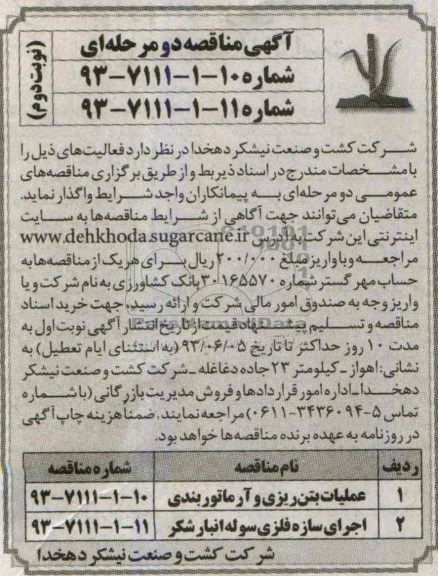 آگهی مناقصه دو مرحله‌ای
شماره ۱۰-۱-۷۱۱۱-۹۳
شماره ۱۱-۱-۷۱۱۱-۹۳
(نوبت دوم)
شرکت کشت و صنعت نیشکر دهخدا در نظر دارد فعالیت‌های ذیل را
با مشخصات مندرج در اسناد ذیربط و از طریق برگزاری مناقصه‌های
عمومی دو مرحله‌ای به پیمانکاران واجد شرایط واگذار نماید.
متقاضیان می‌توانند جهت آگاهی از شرایط مناقصه‌ها به سایت
اینترنتی این شرکت به آدرس www.dehkhoda.sugarcane.ir
مراجعه و با واریز مبلغ ۲۰۰/۰۰۰ ریال برای هر یک از مناقصه‌ها به
حساب مهر گستر شماره ۳۰۱۶۵۵۷۰ بانک کشاورزی به نام شرکت و یا
واریز وجه به صندوق امور مالی شرکت و ارائه رسید، جهت خرید اسناد
مناقصه و تسلیم پیشنهاد قیمت از تاریخ انتشار آگهی نوبت اول به
مدت ۱۰ روز حداکثر تا تاریخ ۹۳/۰۶/۰۵ (به استثنای ایام تعطیل) به
نشانی: اهواز - کیلومتر ۲۳ جاده دغاغله - شرکت کشت و صنعت نیشکر
دهخدا - اداره امور قراردادها و فروش مدیریت بازرگانی (با شماره
تماس ۵-۳۴۳۶۰۹۴-۰۶۱۱) مراجعه نمایند. ضمناً هزینه چاپ آگهی
در روزنامه به عهده برنده مناقصه‌ها خواهد بود.
ردیف نام مناقصه شماره مناقصه
۱ عملیات بتن ریزی و آرماتوربندی ۱۰-۱-۷۱۱۱-۹۳
۲ اجرای سازه فلزی سوله انبار شکر ۱۱-۱-۷۱۱۱-۹۳
شرکت کشت و صنعت نیشکر دهخدا